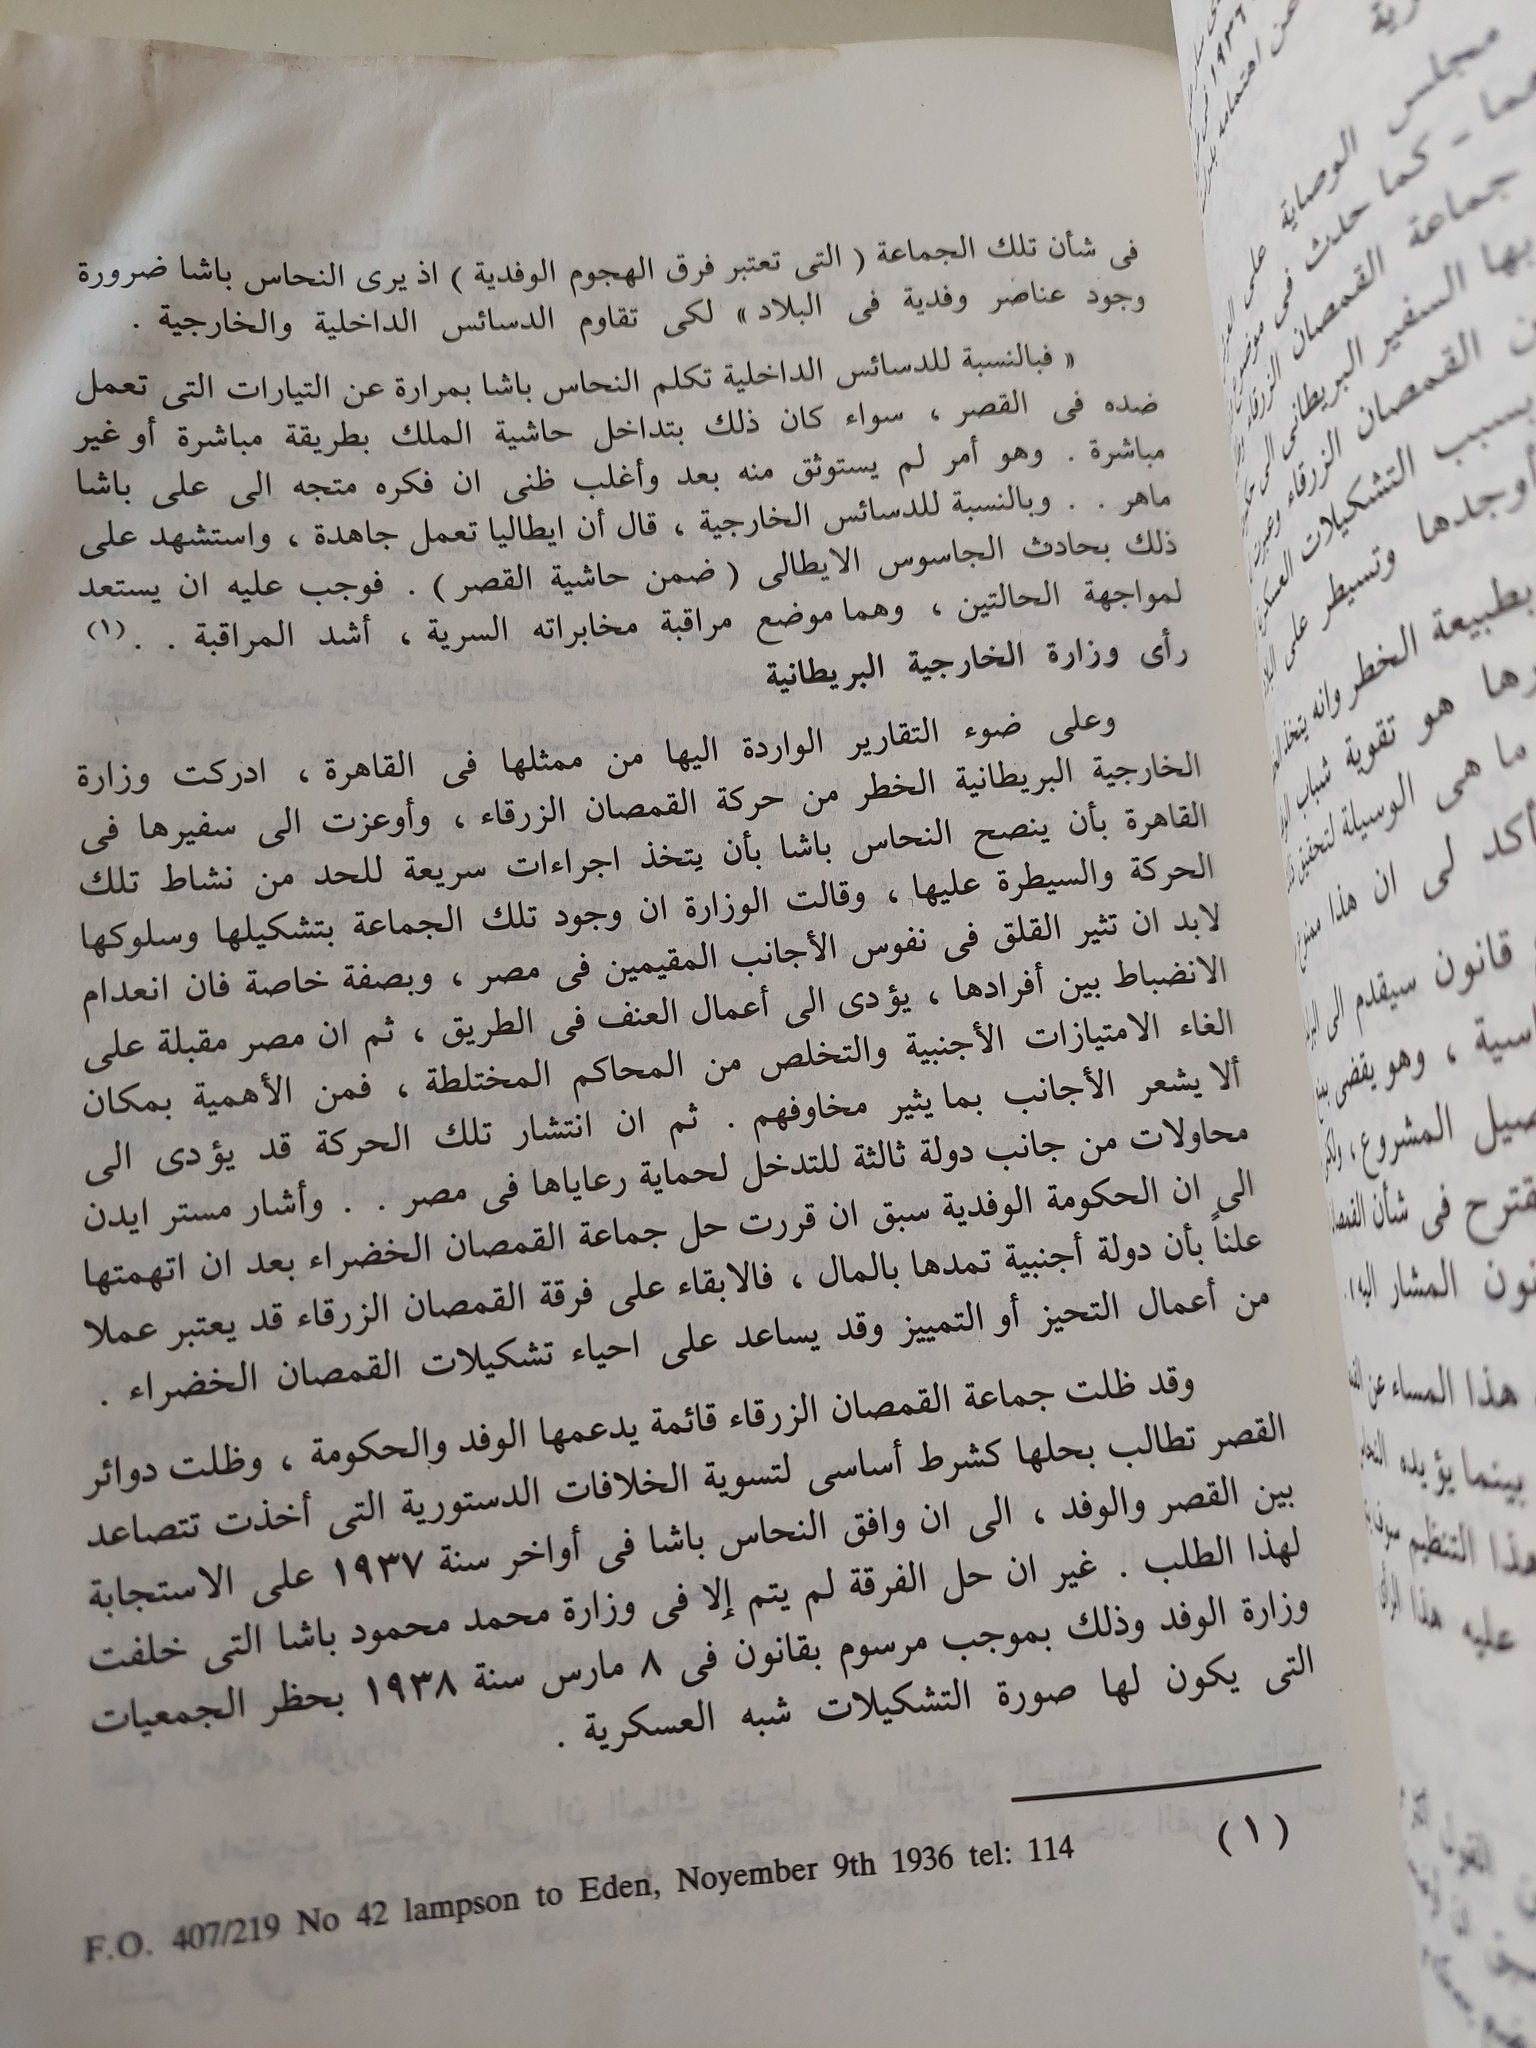 فى شأن تلك الجماعة ( التى تعتبر فرق الهجوم الوفدية ) اذ يرى النحاس باشا ضرورة
وجود عناصر وفدية فى البلاد » لكى تقاوم الدسائس الداخلية والخارجية .
« فبالنسبة للدسائس الداخلية تكلم النحاس باشا بمرارة عن التيارات التى تعمل
ضده فى القصر ، سواء كان ذلك بتداخل حاشية الملك بطريقة مباشرة أو غير
مباشرة . وهو أمر لم يستوثق منه بعد وأغلب ظنى ان فكره متجه الى على باشا
ماهر . . وبالنسبة للدسائس الخارجية ، قال أن ايطاليا تعمل جاهدة ، واستشهد على
ذلك بحادث الجاسوس الايطالى ( ضمن حاشية القصر ) . فوجب عليه ان يستعد
لمواجهة الحالتين ، وهما موضع مراقبة مخابراته السرية ، أشد المراقبة . . (١)
رأى وزارة الخارجية البريطانية
وعلى ضوء التقارير الواردة اليها من ممثلها فى القاهرة ، ادركت وزارة
الخارجية البريطانية الخطر من حركة القمصان الزرقاء ، وأوعزت الى سفيرها فى
القاهرة بأن ينصح النحاس باشا بأن يتخذ اجراءات سريعة للحد من نشاط تلك
الحركة والسيطرة عليها ، وقالت الوزارة ان وجود تلك الجماعة بتشكيلها وسلوكها
لابد ان تثير القلق فى نفوس الأجانب المقيمين فى مصر ، وبصفة خاصة فان انعدام
الانضباط بين أفرادها ، يؤدى الى أعمال العنف فى الطريق ، ثم ان مصر مقبلة على
الغاء الامتيازات الأجنبية والتخلص من المحاكم المختلطة ، فمن الأهمية بمكان
ألا يشعر الأجانب بما يثير مخاوفهم . ثم ان انتشار تلك الحركة قد يؤدى الى
محاولات من جانب دولة ثالثة للتدخل لحماية رعاياها فى مصر . . وأشار مستر ايدن
الى ان الحكومة الوفدية سبق ان قررت حل جماعة القمصان الخضراء بعد ان اتهمتها
علناً بأن دولة أجنبية تمدها بالمال ، فالابقاء على فرقة القمصان الزرقاء قد يعتبر عملا
من أعمال التحيز أو التمييز وقد يساعد على احياء تشكيلات القمصان الخضراء .
وقد ظلت جماعة القمصان الزرقاء قائمة يدعمها الوفد والحكومة ، وظلت دوائر
القصر تطالب بحلها كشرط أساسى لتسوية الخلافات الدستورية التى أخذت تتصاعد
بين القصر والوفد ، الى ان وافق النحاس باشا فى أواخر سنة ١٩٣٧ على الاستجابة
لهذا الطلب . غير ان حل الفرقة لم يتم إلا فى وزارة محمد محمود باشا التى خلفت
وزارة الوفد وذلك بموجب مرسوم بقانون فى ٨ مارس سنة ١٩٣٨ بحظر الجمعيات
التى يكون لها صورة التشكيلات شبه العسكرية .
( ١ )
F.O. 407/219 No 42 lampson to Eden, Noyember 9th 1936 tel: 114
مجلس الوصاية على
كما حدث فى
جماعة القمصان الزرقاء
بها السفير البريطانى الى
القمصان الزرقاء
بسبب التشكيلات
أوجدها وتسيطر على
بطبيعة الخطر وانه يتخذ
هو تقوية شباب
ما هى الوسيلة لتحقيق
لى ان هذا
قانون سيقدم الى
، وهو يقضى
المشروع ،
فى شأن
المشار اليه ) .
هذا المساء عن
بينما يؤيده
التنظيم سوف
عليه هذا